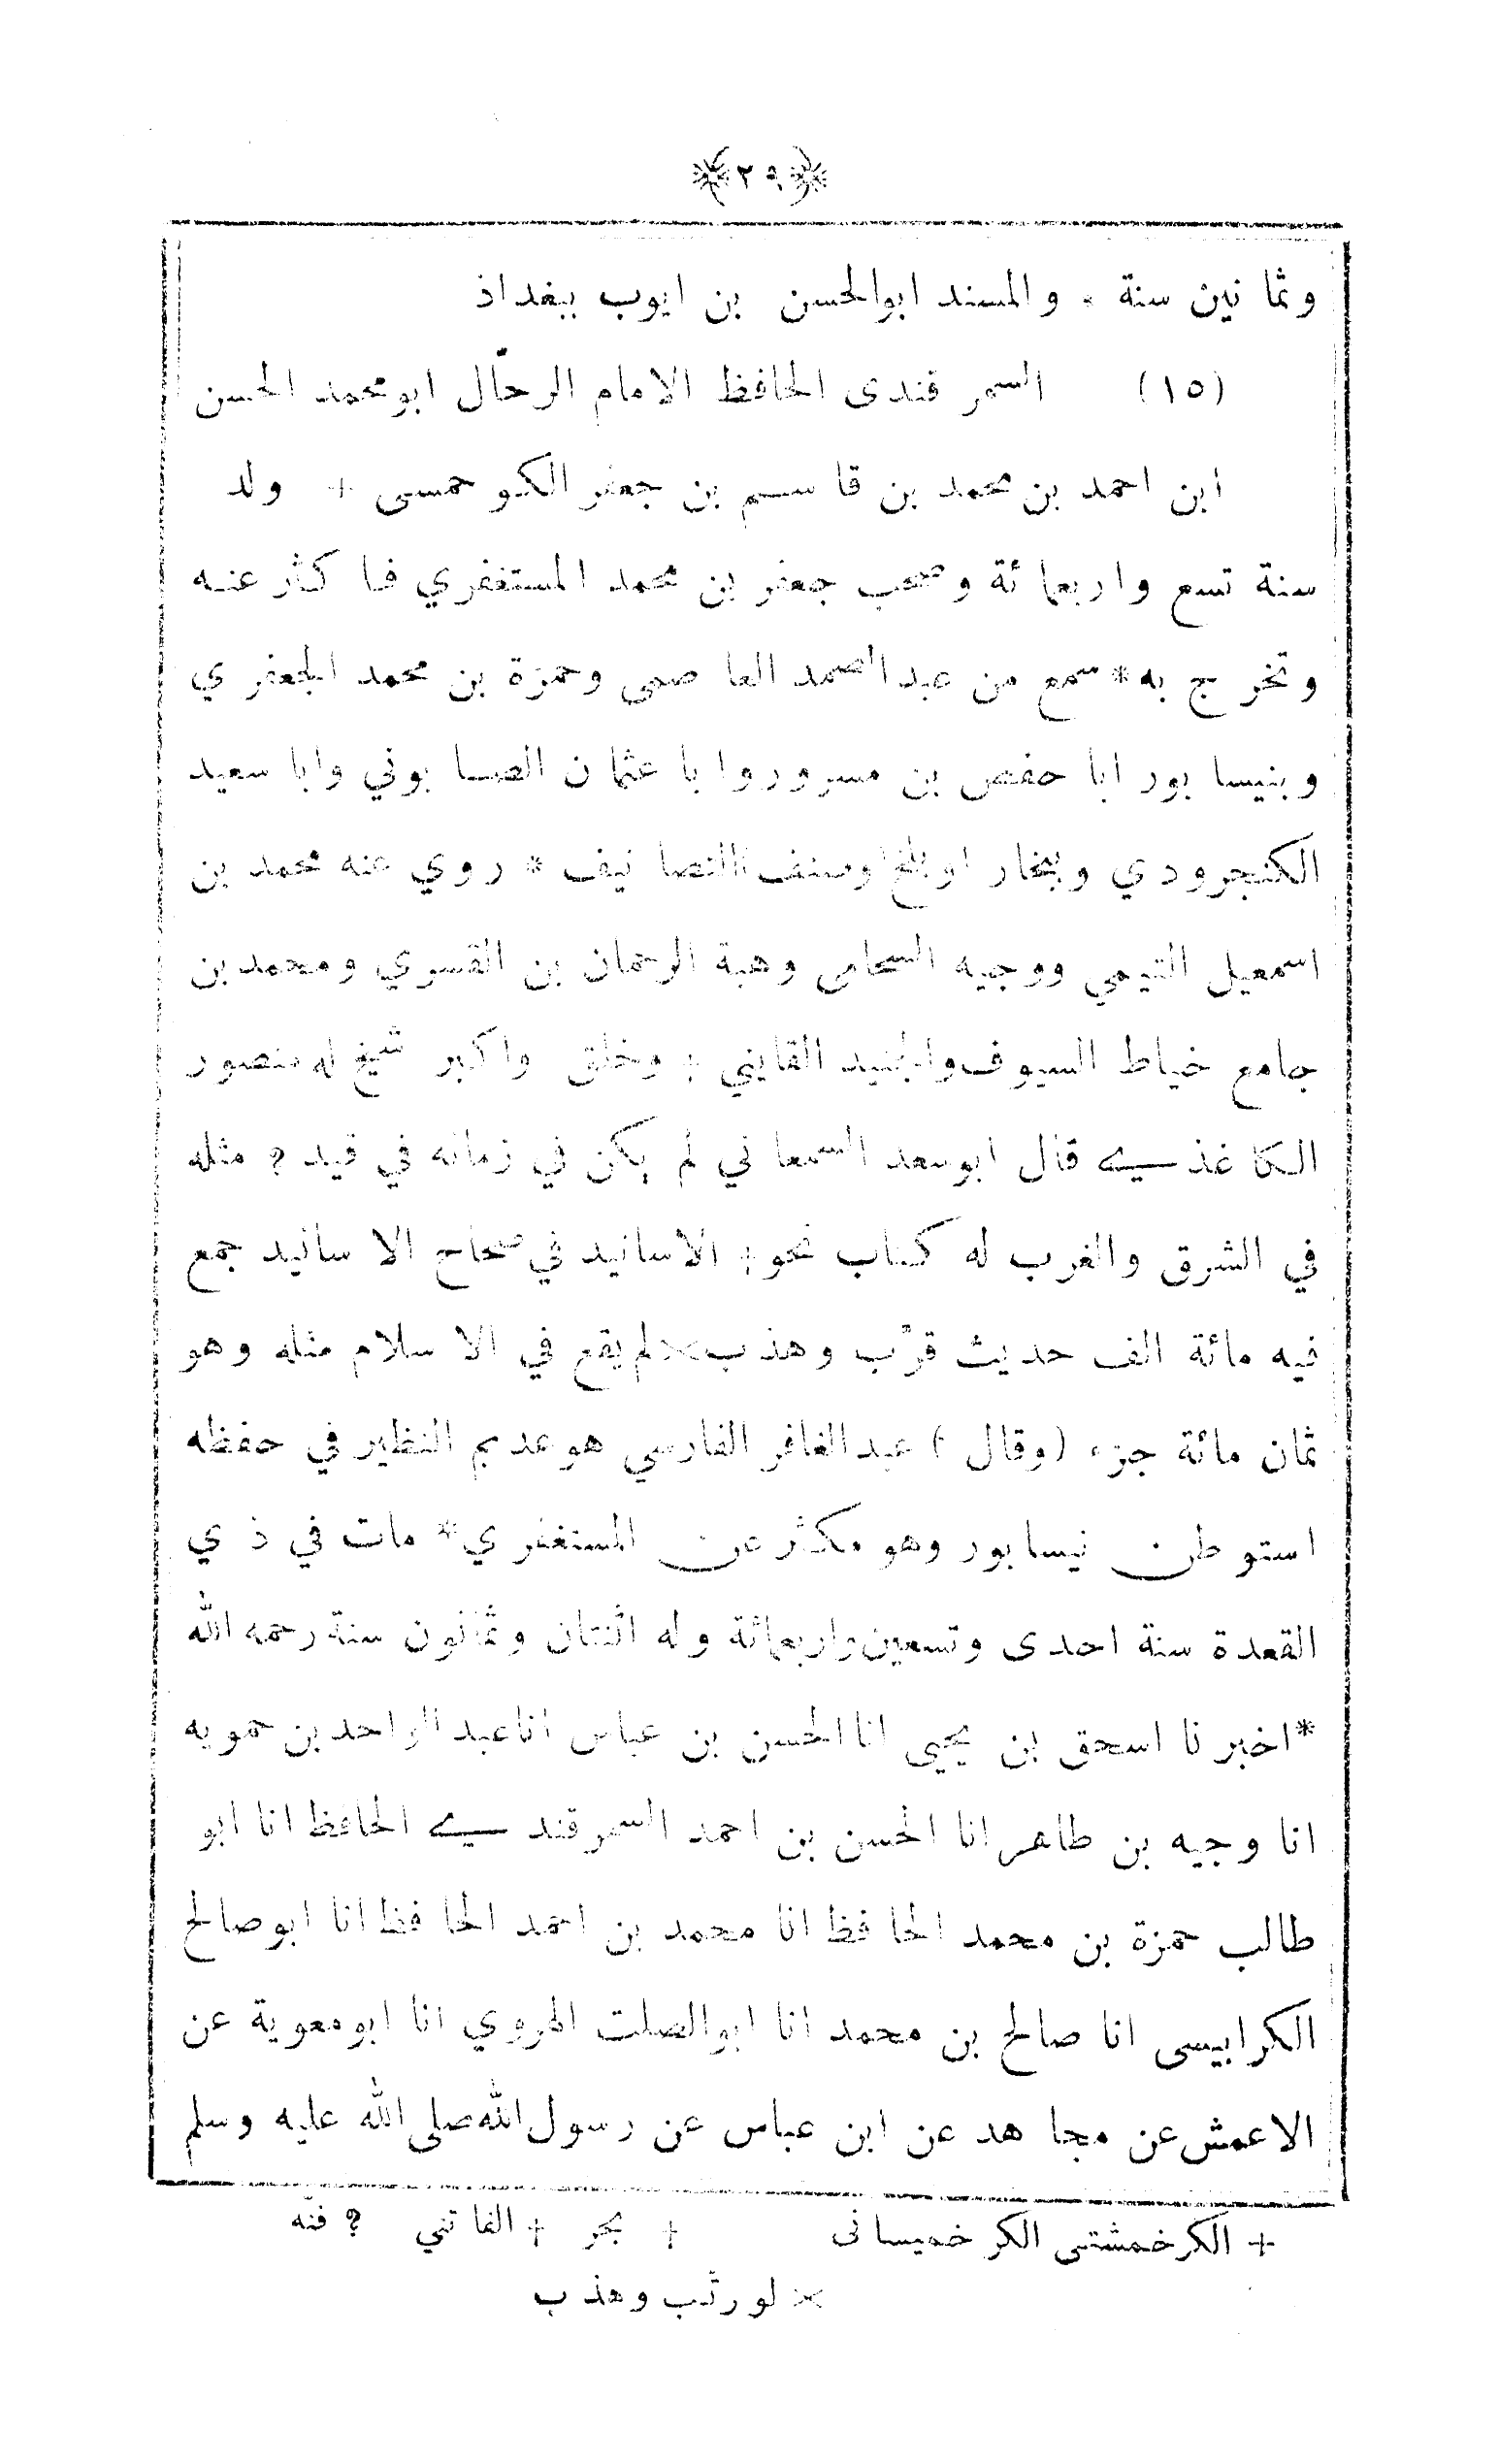 ٢٩
وثما نين سنة * والمسند ابوالحسن بن ايوب ببغداذ
(١٥) السمر قندى الحافظ الامام الرحّال ابومحمد الحسن
ابن احمد بن محمد بن قا سم بن جعفر الكو حمسى + ولد
سنة تسع واربعمائة وصحب جعفر بن محمد المستغفري فا كثر عنه
وتخر ج به * سمع من عبدالصمد العا صمى وحمزة بن محمد الجعفر ي
وبنيسا بور ابا حفص بن مسرور وابا عثما ن الصا بوني وابا سعيد
الكنجرودي وبخار اوبلخ وصنف التصا نيف * روي عنه محمد بن
اسمعيل التيمي ووجيه الشحامى وهبة الرحمان بن القسري ومحمد بن
جامع خياط السيوف والجنيد القايني + وخلق واكبر شيخ له منصور
الكا غذ سے قال ابوسعد السمعا ني لم يكن في زمانه في قيد ? مثله
في الشرق والغرب له كتاب نحو + الاسانيد في صحاح الا سانيد جمع
فيه مائة الف حديث قرّب وهذب × لم يقع في الا سلام مثله وهو
ثمان مائة جزء (وقال) عبدالغافر الفارسي هو عديم النظير في حفظه
استو طن نيسابور وهو مكثر عن المستغفر ي * مات في ذ ي
القعدة سنة احدى وتسعين واربعمائة وله اثنتان وثمانون سنة رحمه الله
* اخبر نا اسحق بن يحيى انا الحسن بن عباس انا عبد الواحد بن حمويه
انا وجيه بن طاهر انا الحسن بن احمد السمرقند سے الحافظ انا ابو
طالب حمزة بن محمد الحا فظ انا محمد بن احمد الحا فظ انا ابو صالح
الكرابيسى انا صالح بن محمد انا ابوالصلت الهروي انا ابومعوية عن
الاعمش عن مجا هد عن ابن عباس عن رسول الله صلى الله عليه وسلم
+ الكرخمشتى الكر خميسانى + بحر + القا تني ? فنّه
× لو رتّب وهذ ب